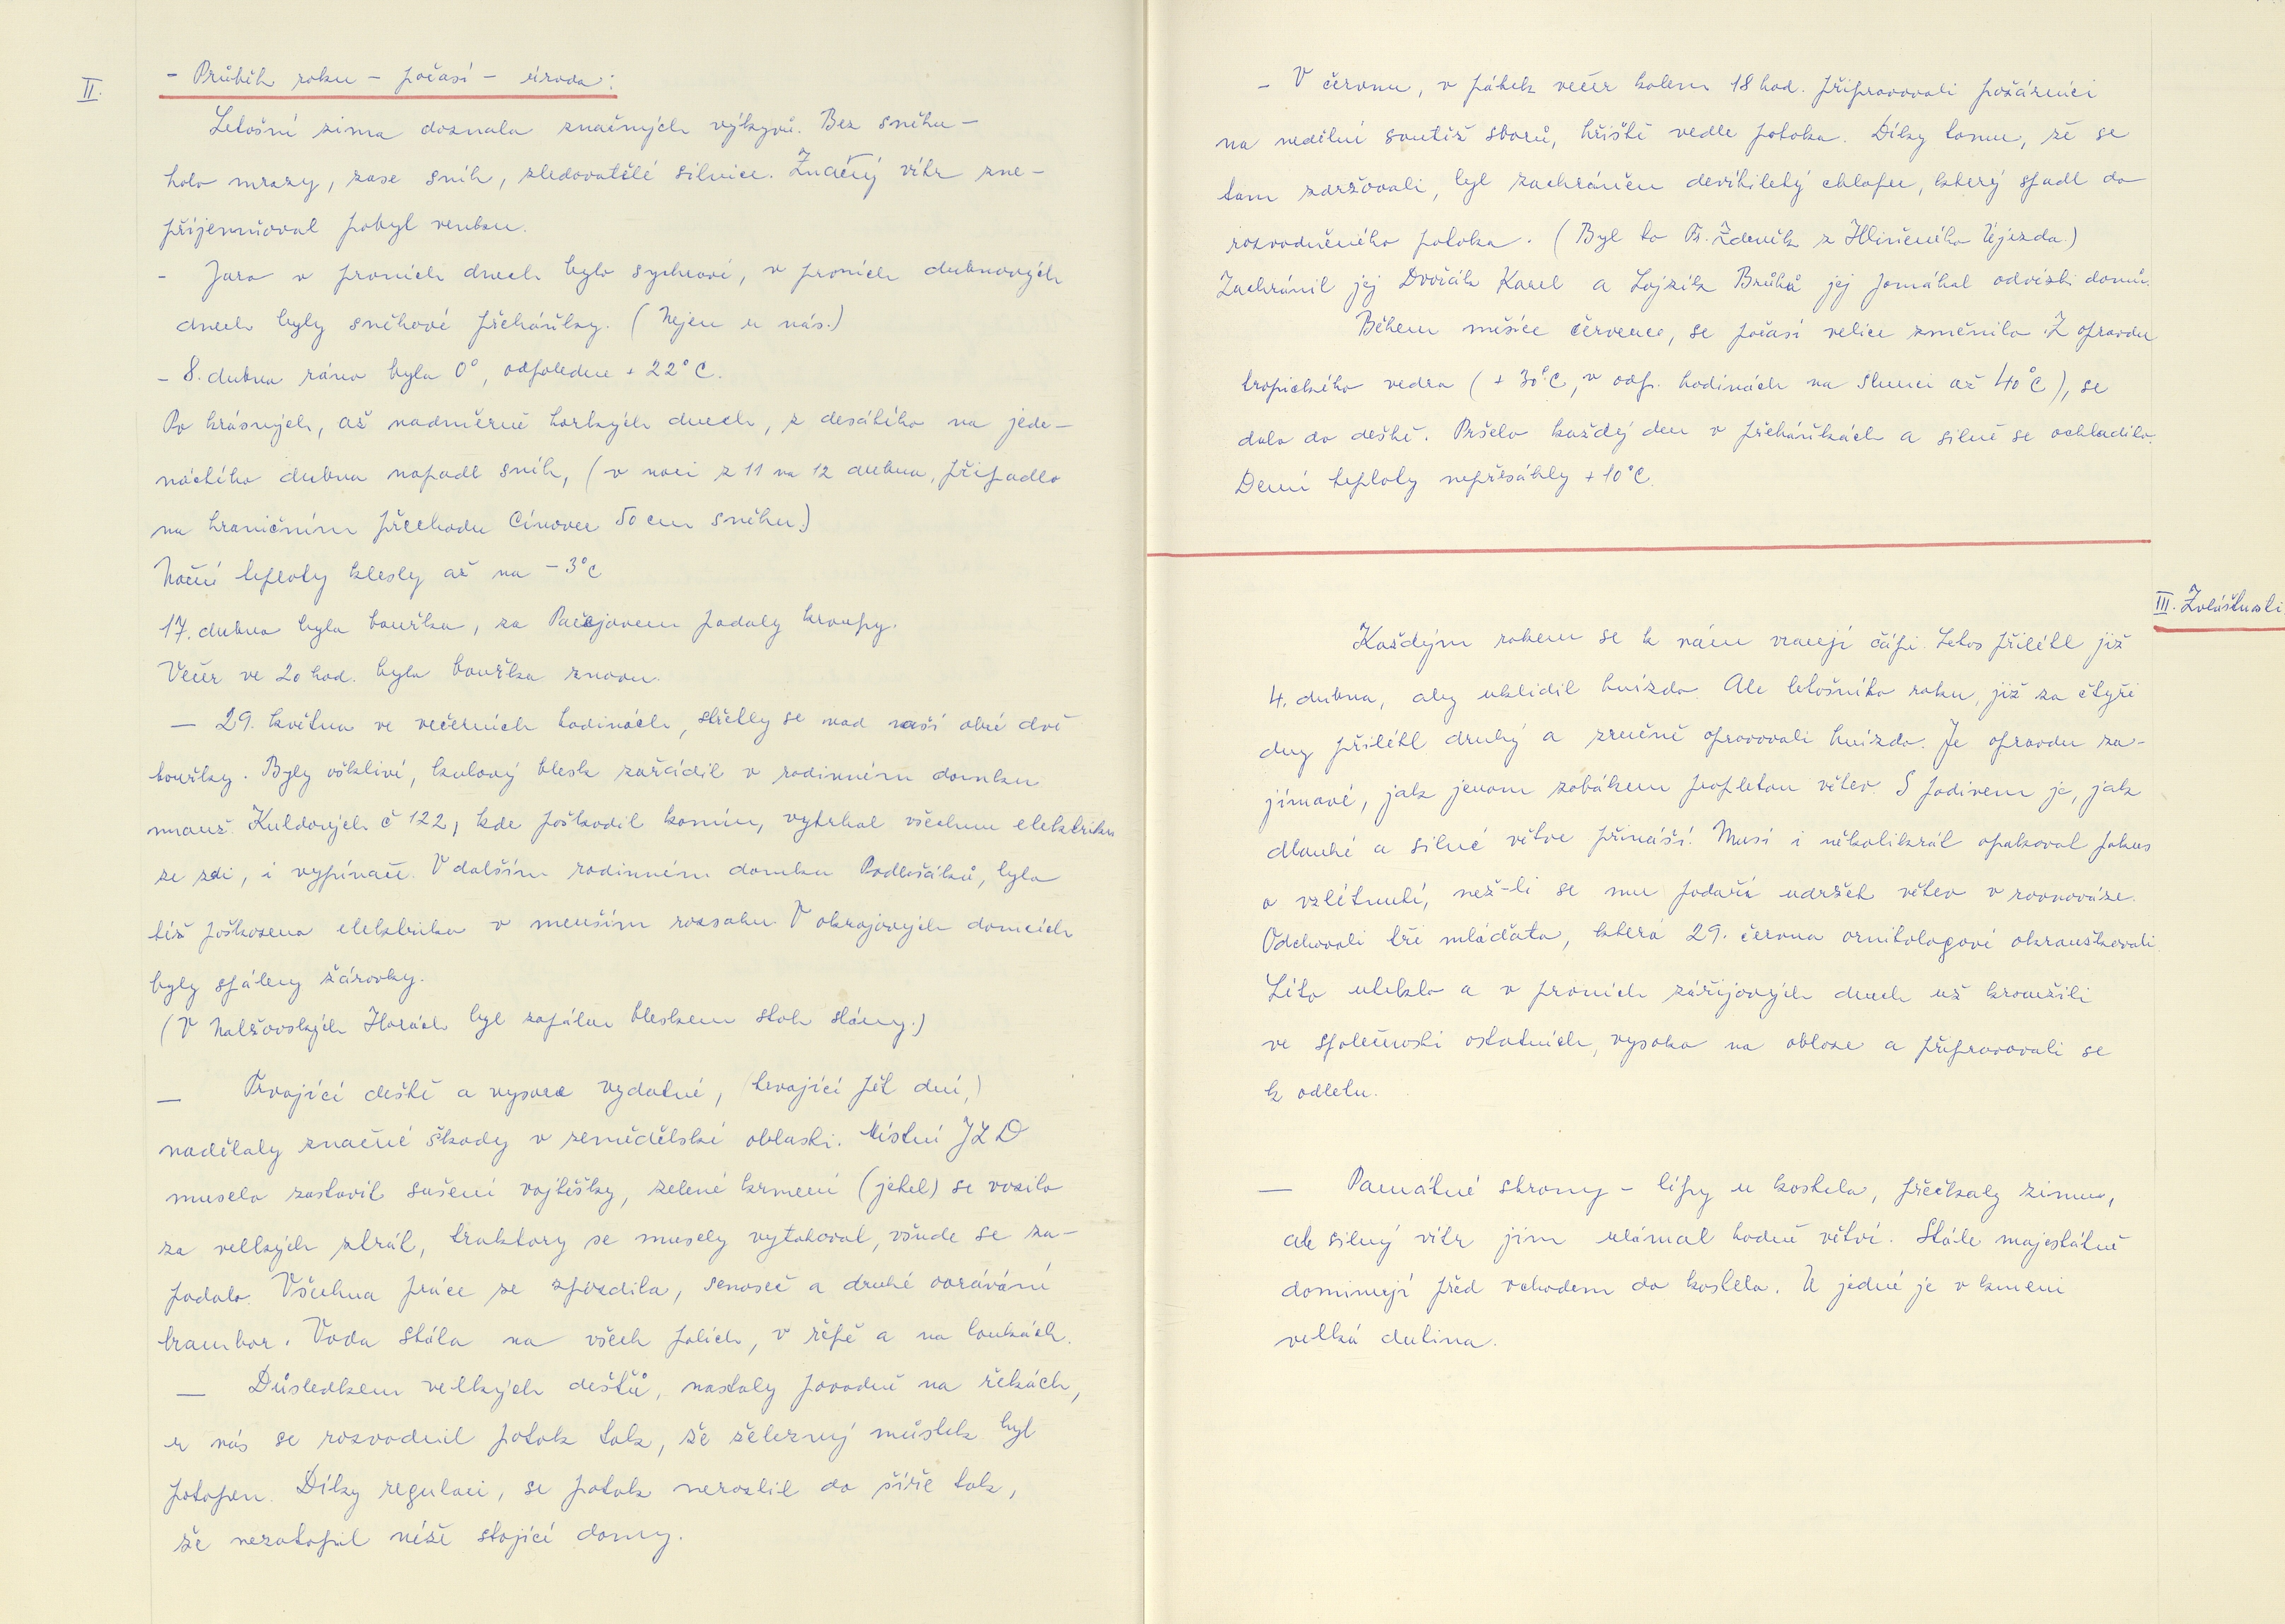 II.
- Průběh roku - počasí - úroda:
Letošní zima doznala značných výkyvů. Bez sněhu -
holo mrazy, zase sníh, zledovatělé silnice. Značný vítr zne-
příjemňoval pobyt venku.
- Jaro v prvních dnech bylo sychravé, v prvních dubnových
dnech byly sněhové přeháňky. (Nejen u nás.)
- 8. dubna ráno bylo 0°, odpoledne + 22°C.
Po krásných, až nadměrně horkých dnech, z desátého na jede-
náctého dubna napadl sníh, (v noci z 11 na 12 dubna, připadlo
na hraničním přechodu Cínovec 50 cm sněhu.)
Noční teploty klesly až na - 3°C
17. dubna byla bouřka, za Pačejovem padaly kroupy.
Večer ve 20 hod. byla bouřka znovu.
- 29. května ve večerních hodinách, střetly se nad naší obcí dvě
bouřky. Byly ošklivé, kulový blesk zařádil v rodinném domku
manž. Kuldových č 122, kde poškodil komín, vytrhal všechnu elektriku
ze zdi, i vypínače. V dalším rodinném domku Podlešáků, byla
též poškozena elektrika v menším rozsahu. V okrajových domcích
byly spáleny žárovky.
(V Nalžovských Horách byl zapálen bleskem stoh slámy.)
- Trvající deště a vysoce vydatné, (trvající pět dní,)
nadělaly značné škody v zemědělské oblasti. Místní JZD
muselo zastavit sušení vojtěšky, zelené krmení (jetel) se vozilo
za velkých ztrát, traktory se musely vytahovat, všude se za-
padalo. Všechna práce se zpozdila, senoseč a druhé oorávání
brambor. Voda stála na všech polích, v řepě a na loukách.
- Důsledkem velkých dešťů, nastaly povodně na řekách,
u nás se rozvodnil potok tak, že železný můstek byl
potopen. Díky regulaci, se potok nerozlil do šíře tak,
že nezatopil níže stojící domy.
- V červnu, v pátek večer kolem 18 hod. připravovali požárníci
na nedělní soutěž sborů, hřiště vedle potoka. Díky tomu, že se
tam zdržovali, byl zachráněn devítiletý chlapec, který spadl do
rozvodněného potoka. (Byl to Tr. Zdeněk z Hlineného Újezda.)
Zachránil jej Dvořák Karel a Lojzík Brůhů jej pomáhal odvésti domů.
Během měsíce července, se počasí velice změnilo. Z opravdu
tropického vedra (+ 30°C, v odp. hodinách na slunci až 40°C), se
dalo do deště. Pršelo každý den v přeháňkách a silně se ochladilo.
Denní teploty nepřesáhly + 10°C.
III. Zvláštnosti
Každým rokem se k nám vracejí čápi. Letos přilétl již
4. dubna, aby uklidil hnízdo. Ale letošního roku, již za čtyři
dny přilétl druhý a zručně opravovali hnízdo. Je opravdu za-
jímavé, jak jenom zobákem propletou větev. S podivem je, jak
dlouhé a silné větve přináší. Musí i několikrát opakovat pokus
o vzlétnutí, než-li se mu podaří udržet větev v rovnováze.
Odchovali tři mláďata, která 29. června ornitologové okroužkovali.
Léto uteklo a v prvních zářijových dnech už kroužili
ve společnosti ostatních, vysoko na obloze a připravovali se
k odletu.
- Památné stromy - lípy u kostela, přečkaly zimu,
ale silný vítr jim ulámal hodně větví. Stále majestátně
dominují před vchodem do kostela. U jedné je v kmeni
velká dutina.